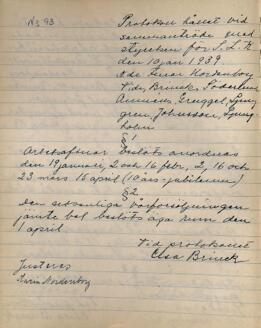 No 93
Protokoll hållet vid
sammanträde med
styrelsen för S. L. K.
den 10 jan 1939
Närv. Nordenborg
Brinck, Söderlund
Gruggel, Ljung-
gren, Johnsson, Ljung-
holm
§ 1
Arbetsaftnar beslöts anordnas
den 19 januari, 2 och 16 febr., 2, 16 och
23 mars 16 april (10 års-jubileum)
§ 2
Den sedvanliga vårförsäljningen
jämte bal beslöts äga rum den
1 april
Vid protokollet
Elsa Brinck
Justeras
Nordenborg